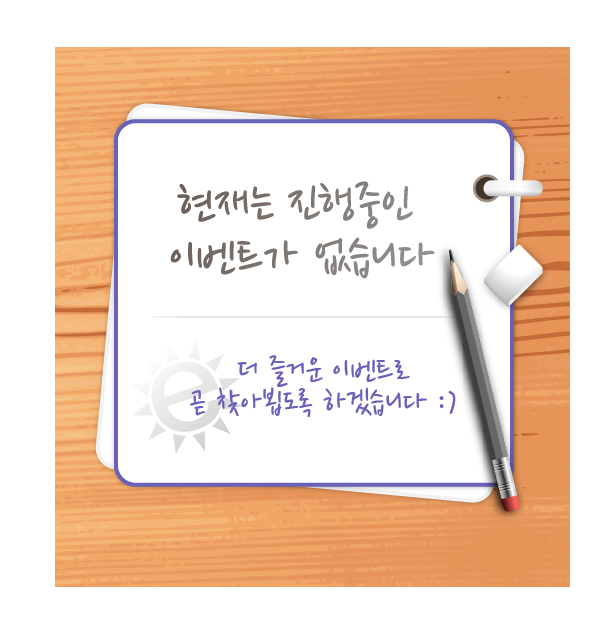 현재는 진행중인
이벤트가 없습니다
더 즐거운 이벤트로
곧 찾아뵙도록 하겠습니다 :)
e